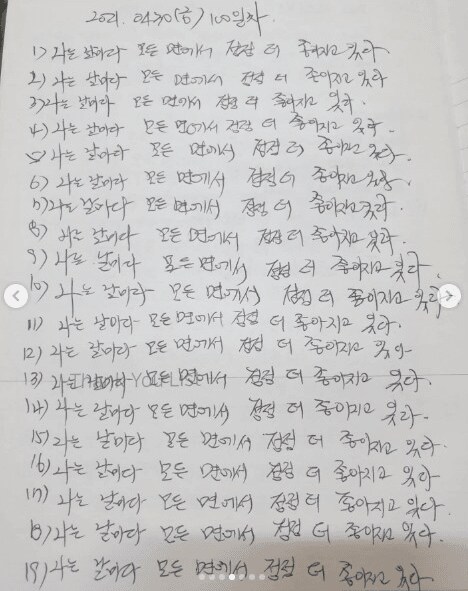 2021. 04.30(금) 100일차.
1) 나는 날마다 모든 면에서 점점 더 좋아지고 있다
2) 나는 날마다 모든 면에서 점점 더 좋아지고 있다
3) 나는 날마다 모든 면에서 점점 더 좋아지고 있다.
4) 나는 날마다 모든 면에서 점점 더 좋아지고 있다.
5) 나는 날마다 모든 면에서 점점 더 좋아지고 있다.
6) 나는 날마다 모든 면에서 점점 더 좋아지고 있다.
7) 나는 날마다 모든 면에서 점점 더 좋아지고 있다.
8) 나는 날마다 모든 면에서 점점 더 좋아지고 있다.
9) 나는 날마다 모든 면에서 점점 더 좋아지고 있다.
10) 나는 날마다 모든 면에서 점점 더 좋아지고 있다
11) 나는 날마다 모든 면에서 점점 더 좋아지고 있다.
12) 나는 날마다 모든 면에서 점점 더 좋아지고 있다
13) 나는 날마다 모든 면에서 점점 더 좋아지고 있다.
14) 나는 날마다 모든 면에서 점점 더 좋아지고 있다.
15) 나는 날마다 모든 면에서 점점 더 좋아지고 있다.
16) 나는 날마다 모든 면에서 점점 더 좋아지고 있다.
17) 나는 날마다 모든 면에서 점점 더 좋아지고 있다.
18) 나는 날마다 모든 면에서 점점 더 좋아지고 있다.
19) 나는 날마다 모든 면에서 점점 더 좋아지고 있다.